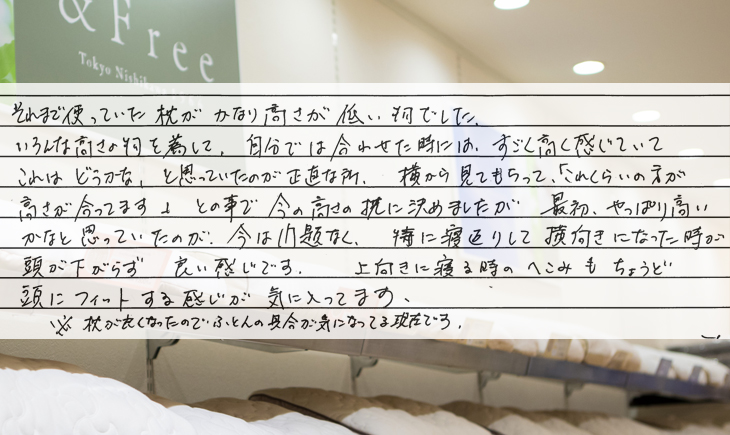 & Free
Tokyo Nishikawa
それまで使っていた枕が かなり高さが 低い物でした。
いろんな高さの物を試して、自分では合わせた時には、すごく高く感じていて
これは どうかな、と思っていたのが正直な所、 横から見てもらって、「これくらいの方が
高さが合ってます」との事で今の高さの枕に決めましたが 最初、やっぱり高い
かなと思っていたのが、今は問題なく、 特に寝返りして横向きになった時が
頭が下がらず 良い感じです。 上向きに寝る時のへこみもちょうど
頭にフィットする感じが気に入ってます、
※ 枕が良くなったのでふとんの具合が気になってる現在です。